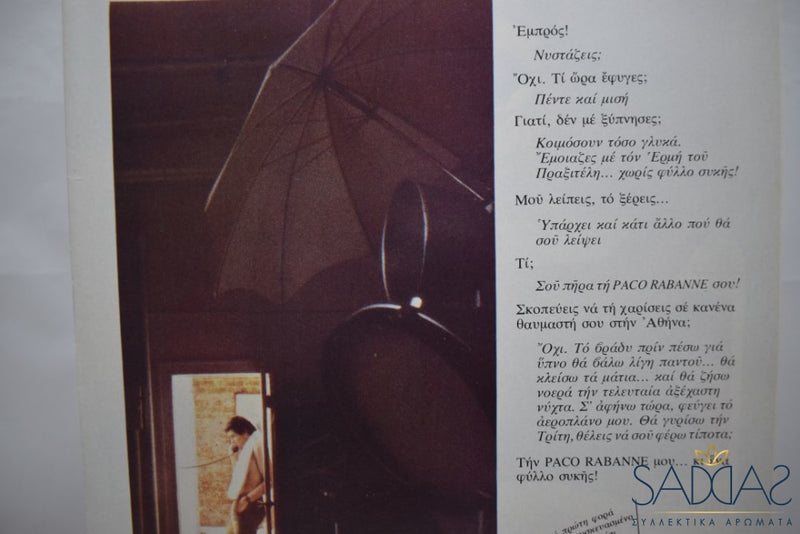 Ἐμπρός!
Νυστάζεις;
Ὄχι. Τί ὥρα ἔφυγες;
Πέντε καί μισή
Γιατί, δέν μέ ξύπνησες;
Κοιμόσουν τόσο γλυκά.
Ἔμοιαζες μέ τόν Ἑρμή τοῦ
Πραξιτέλη... χωρίς φύλλο συκῆς!
Μοῦ λείπεις, τό ξέρεις...
Ὑπάρχει καί κάτι ἄλλο πού θά
σοῦ λείψει
Τί;
Σοῦ πῆρα τή PACO RABANNE σου!
Σκοπεύεις νά τή χαρίσεις σέ κανένα
θαυμαστή σου στήν Ἀθήνα;
Ὄχι. Τό βράδυ πρίν πέσω γιά
ὕπνο θά βάλω λίγη παντοῦ... θά
κλείσω τά μάτια... καί θά ζήσω
νοερά τήν τελευταία ἀξέχαστη
νύχτα. Σ' ἀφήνω τώρα, φεύγει τό
ἀεροπλάνο μου. Θά γυρίσω τήν
Τρίτη, θέλεις νά σοῦ φέρω τίποτα;
Τήν PACO RABANNE μου... κι ἕνα
φύλλο συκῆς!
πρώτη φορά
SADDAS
ΣΥΛΛΕΚΤΙΚΑ ΑΡΩΜΑΤΑ